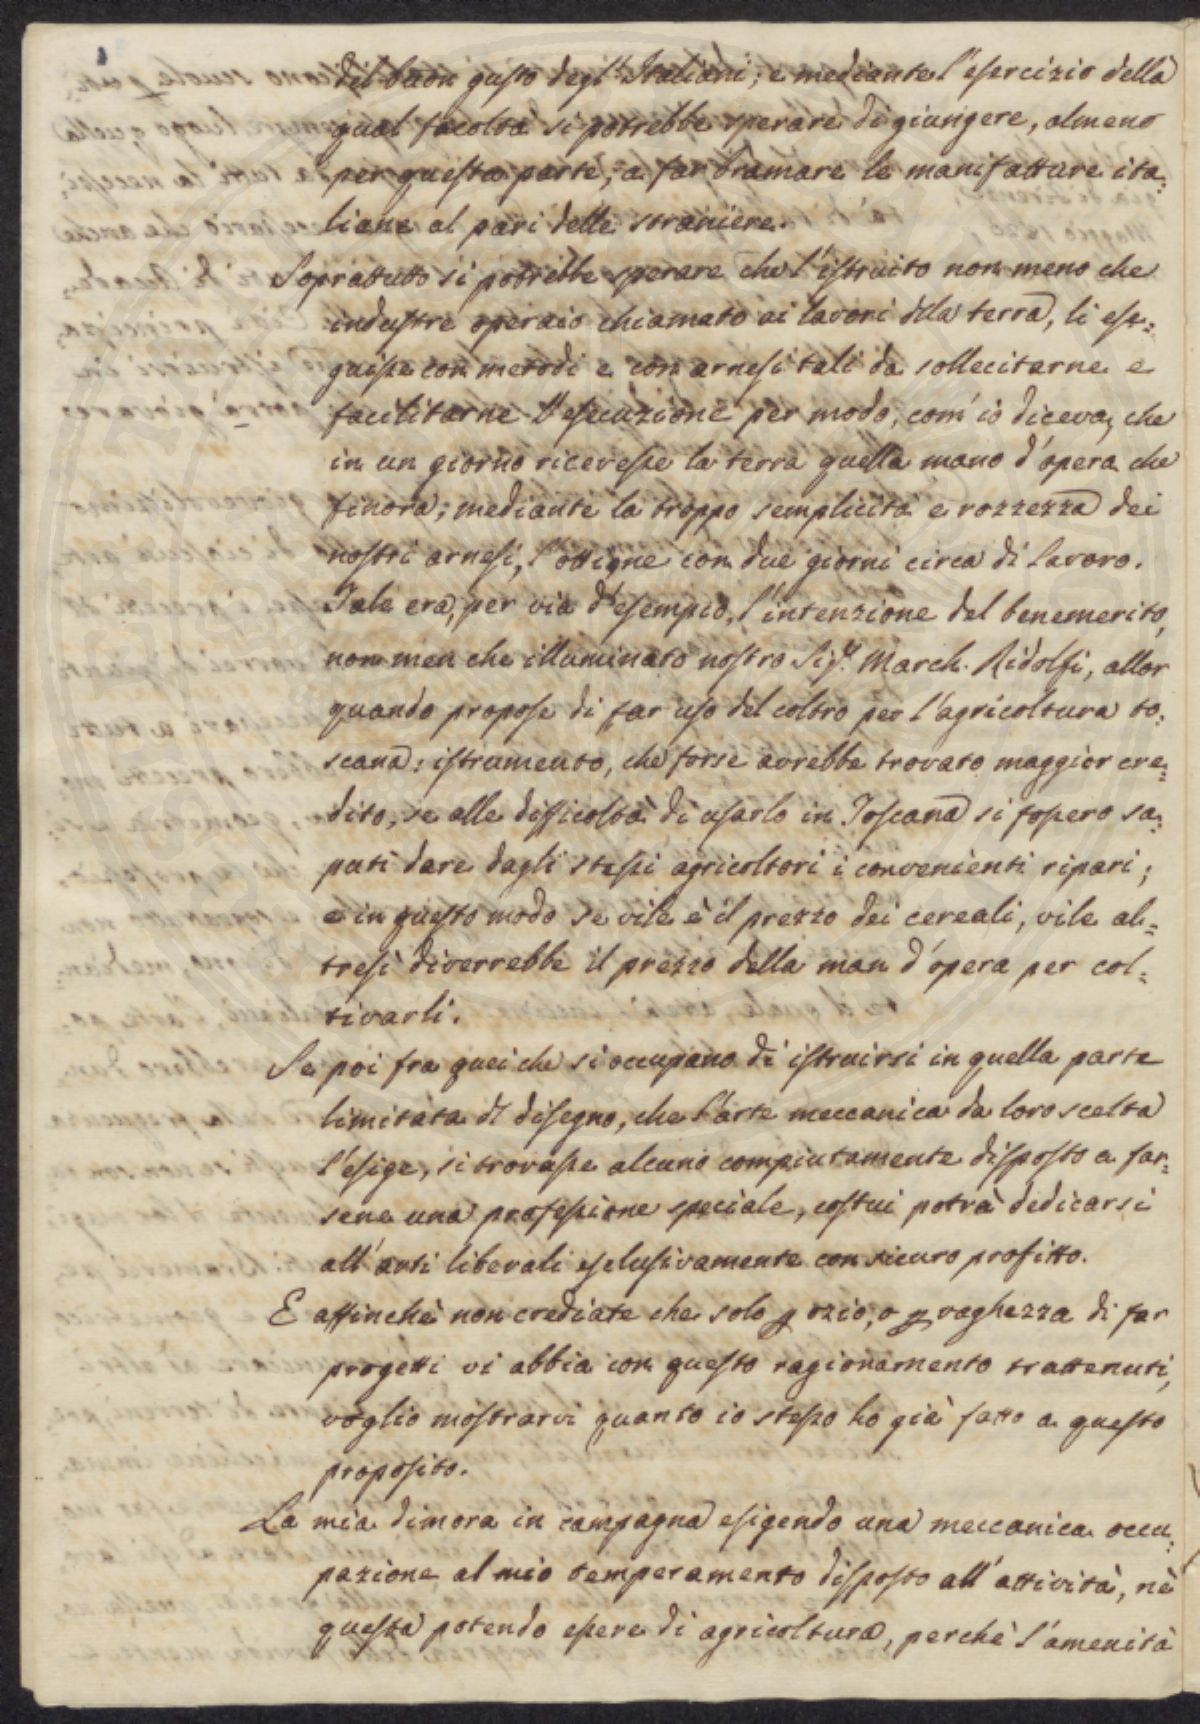 del buon gusto degl'Italiani; e mediante l'esercizio della
qual facoltà si potrebbe sperare di giungere, almeno
per questa parte, a far bramare le manifatture ita:
liane al pari delle straniere.
Soprattutto si potrebbe sperare che l'istruito non meno che
industre operaio chiamato ai lavori della terra, li ese:
guisse con metodi e con arnesi tali da sollecitarne e
facilitarne l'esecuzione per modo, com'io diceva, che
in un giorno ricevesse la terra quella mano d'opera che
finora, mediante la troppo semplicità e rozzezza dei
nostri arnesi, l'ottiene con due giorni circa di lavoro.
Tale era, per via d'esempio, l'intenzione del benemerito,
non men che illuminato nostro Sigr. March. Ridolfi, allor
quando propose di far uso del coltro per l'agricoltura to:
scana: istrumento, che forse avrebbe trovato maggior cre:
dito, se alle difficoltà di usarlo in Toscana si fossero sa:
puti dare dagli stessi agricoltori i convenienti ripari;
e in questo modo se vile è il prezzo dei cereali, vile al:
tresì diverrebbe il prezzo della man d'opera per col:
tivarli.
Se poi fra quei che si occupano di istruirsi in quella parte
limitata di disegno, che l'arte meccanica da loro scelta
l'esige, si trovasse alcuno compiutamente disposto a far:
sene una professione speciale, costui potrà dedicarsi
all'arti liberali esclusivamente con sicuro profitto.
E affinchè non crediate che solo p ozio, o p vaghezza di far
progetti vi abbia con questo ragionamento trattenuti,
voglio mostrarvi quanto io stesso ho già fatto a questo
proposito.
La mia dimora in campagna esigendo una meccanica occu:
pazione al mio temperamento disposto all'attività, nè
questa potendo essere di agricoltura, perchè l'amenità